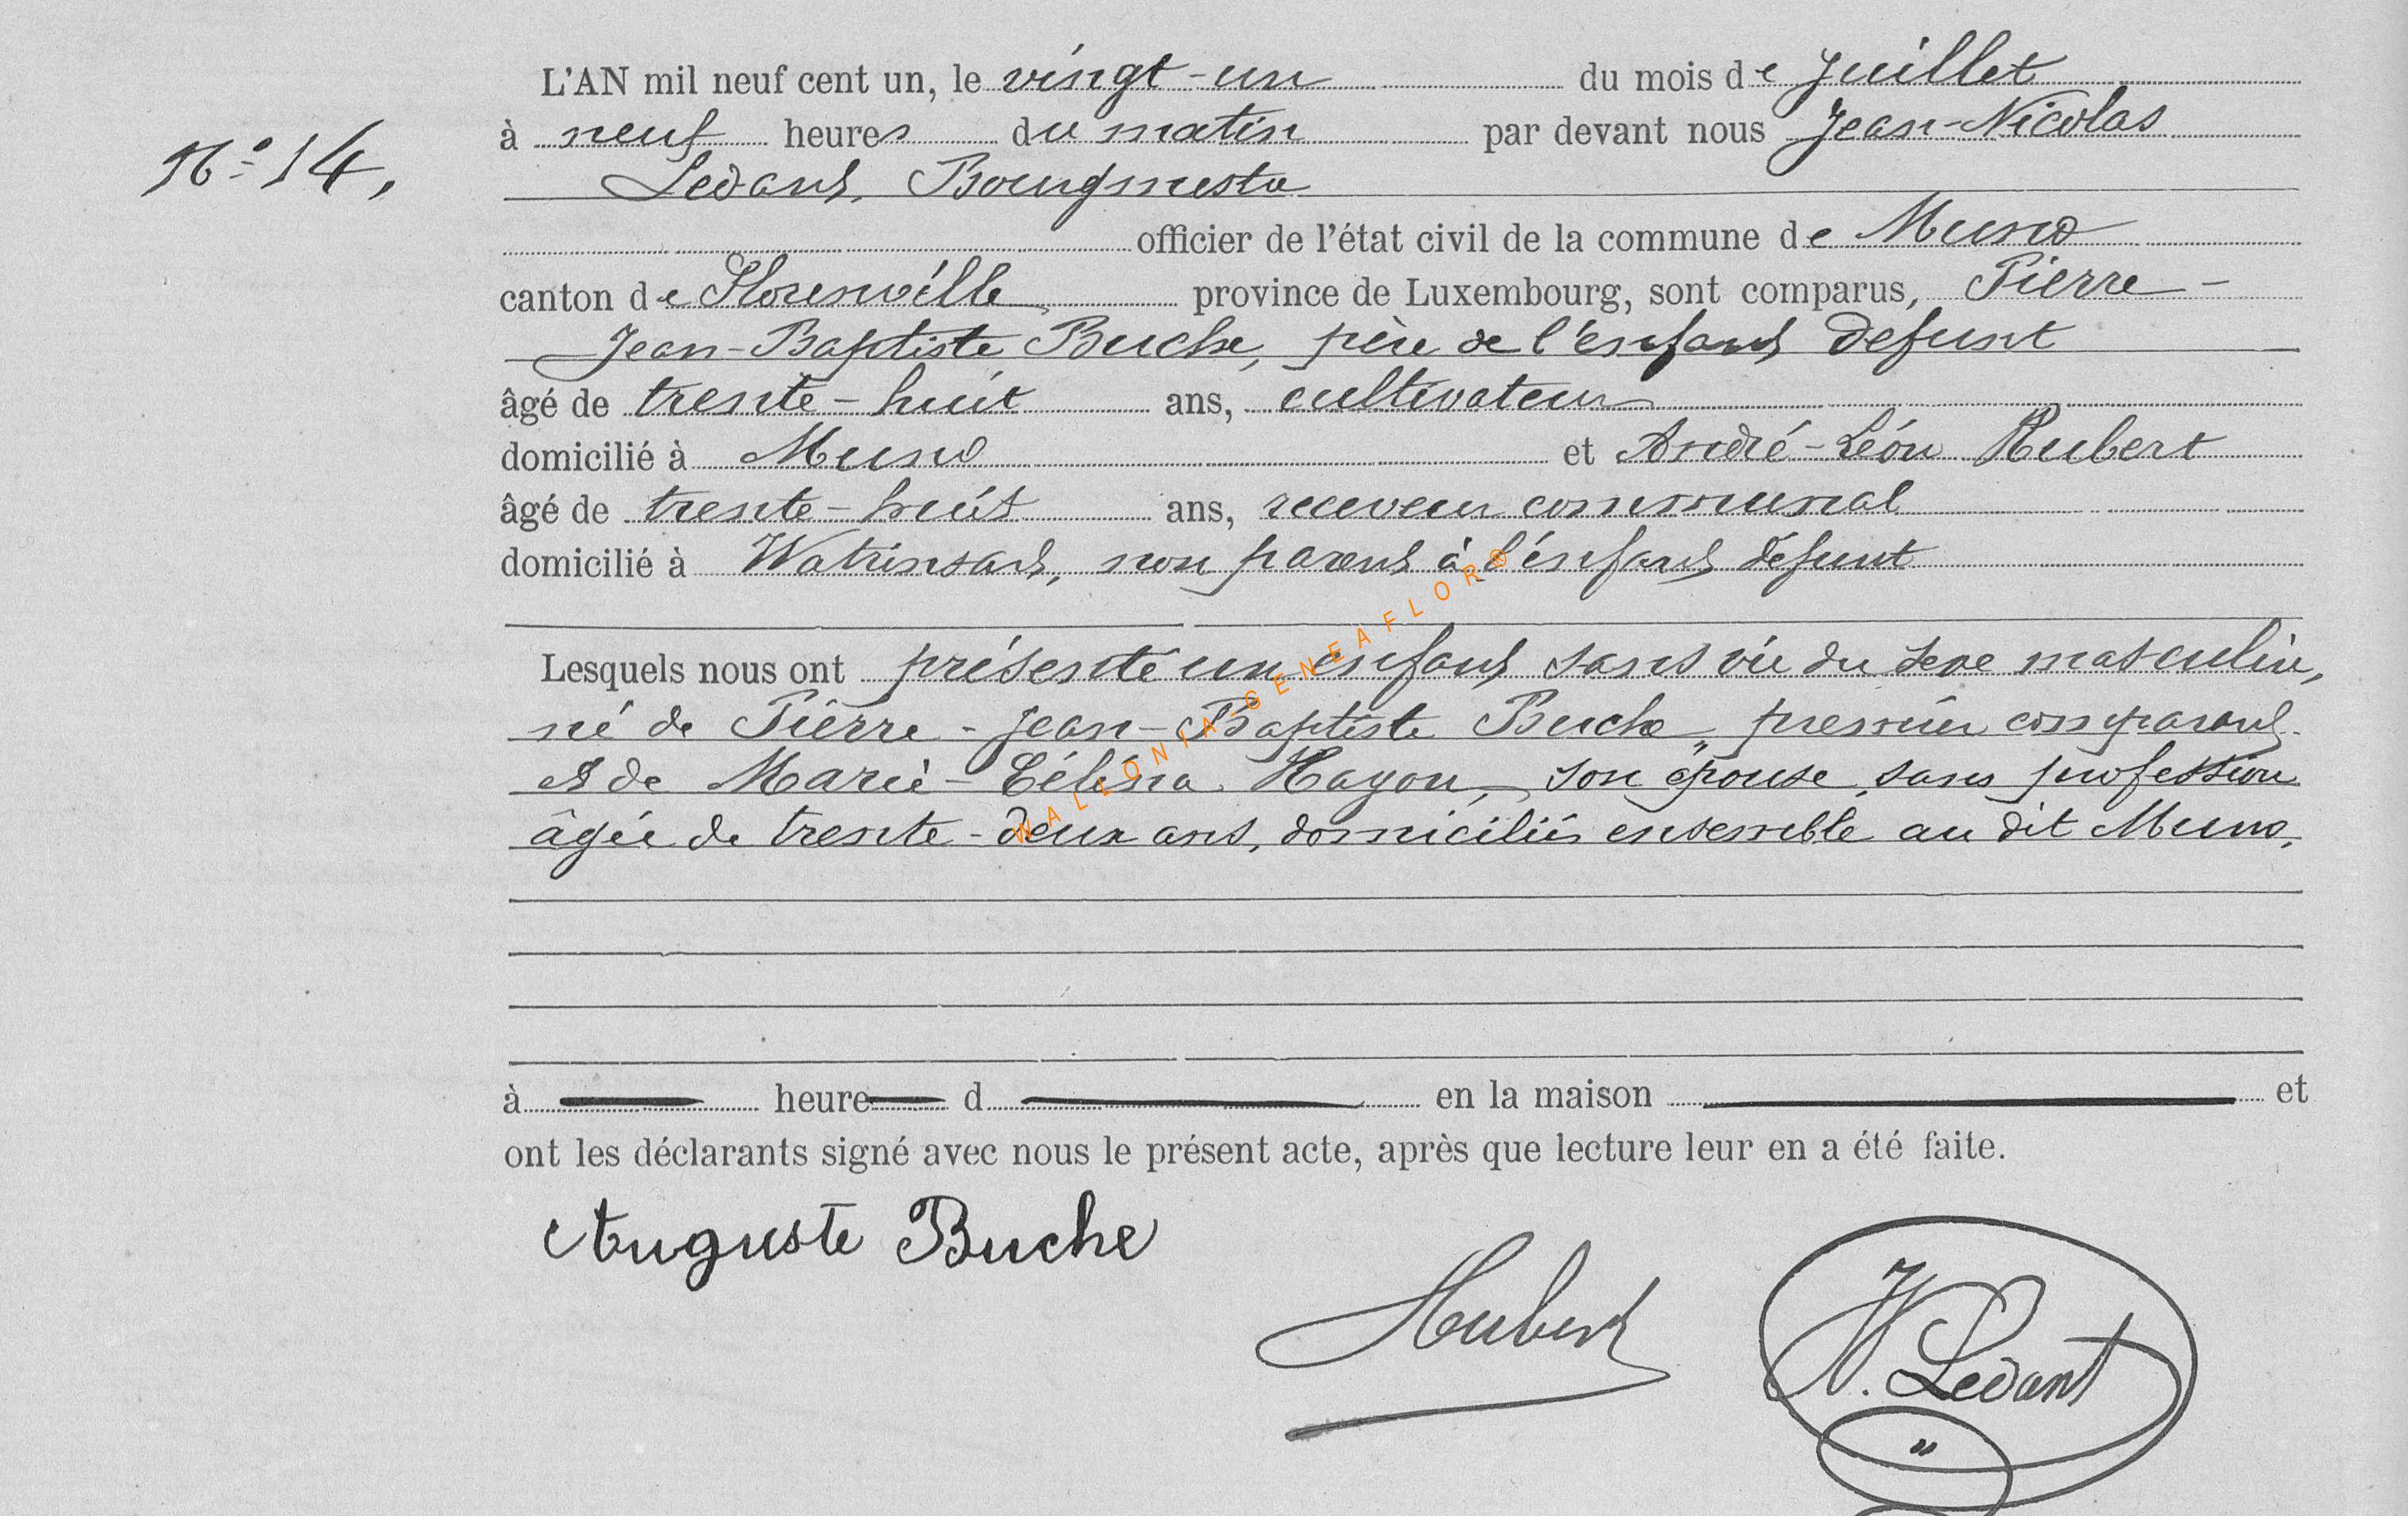 L'AN mil neuf cent un, le vingt-un du mois de Juillet
N° 14,
à neuf heures du matin par devant nous Jean-Nicolas
Ledant, Bourgmestre
officier de l'état civil de la commune de Muno
canton de Florenville province de Luxembourg, sont comparus, Pierre-
Jean-Baptiste Buche, père de l'enfant défunt
âgé de trente-huit ans, cultivateur
domicilié à Muno et André-Léon Hubert
âgé de trente-huit ans, receveur communal
domicilié à Watrinsart, non parent à l'enfant défunt
Lesquels nous ont présenté un enfant sans vie du sexe masculin,
né de Pierre-Jean-Baptiste Buche, premier comparant
et de Marie-Célina Hayon, son épouse, sans profession
âgée de trente-deux ans, domiciliés ensemble au dit Muno,
WALLONIA-GENEAFLOR®
à heure d en la maison et
ont les déclarants signé avec nous le présent acte, après que lecture leur en a été faite.
Auguste Buche
Hubert
N. Ledant